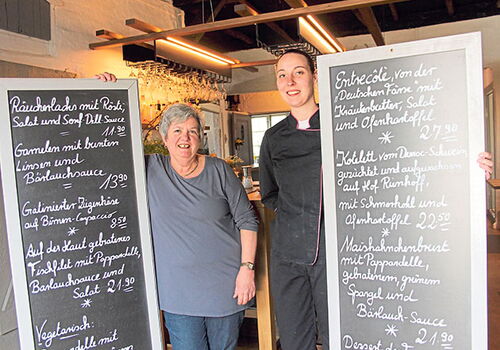 Räucherlachs mit Rösti,
Salat und Senf Dill Sauce
11.90
Garnelen mit bunten
Linsen und
Bärlauchsauce
13.90
Gratinierter Ziegenkäse
auf Birnen-Carpaccio
8.50
Auf der Haut gebratenes
Fischfilet mit Pappardelle,
Bärlauchsauce und
Salat 21.90
Vegetarisch:
Pappardelle mit
Entrecôte, von der
Deutschen Färse mit
Kräuterbutter, Salat
und Ofenkartoffel
27.90
Kotelett vom Democ-Schwein
gezüchtet und aufgewachsen
auf Hof Runhoff,
mit Schmorkohl und
Ofenkartoffel 22.50
Maishähnchenbrust
mit Pappardelle,
gebratenem, grünem
Spargel und
Bärlauch-Sauce
21.90
Dessert